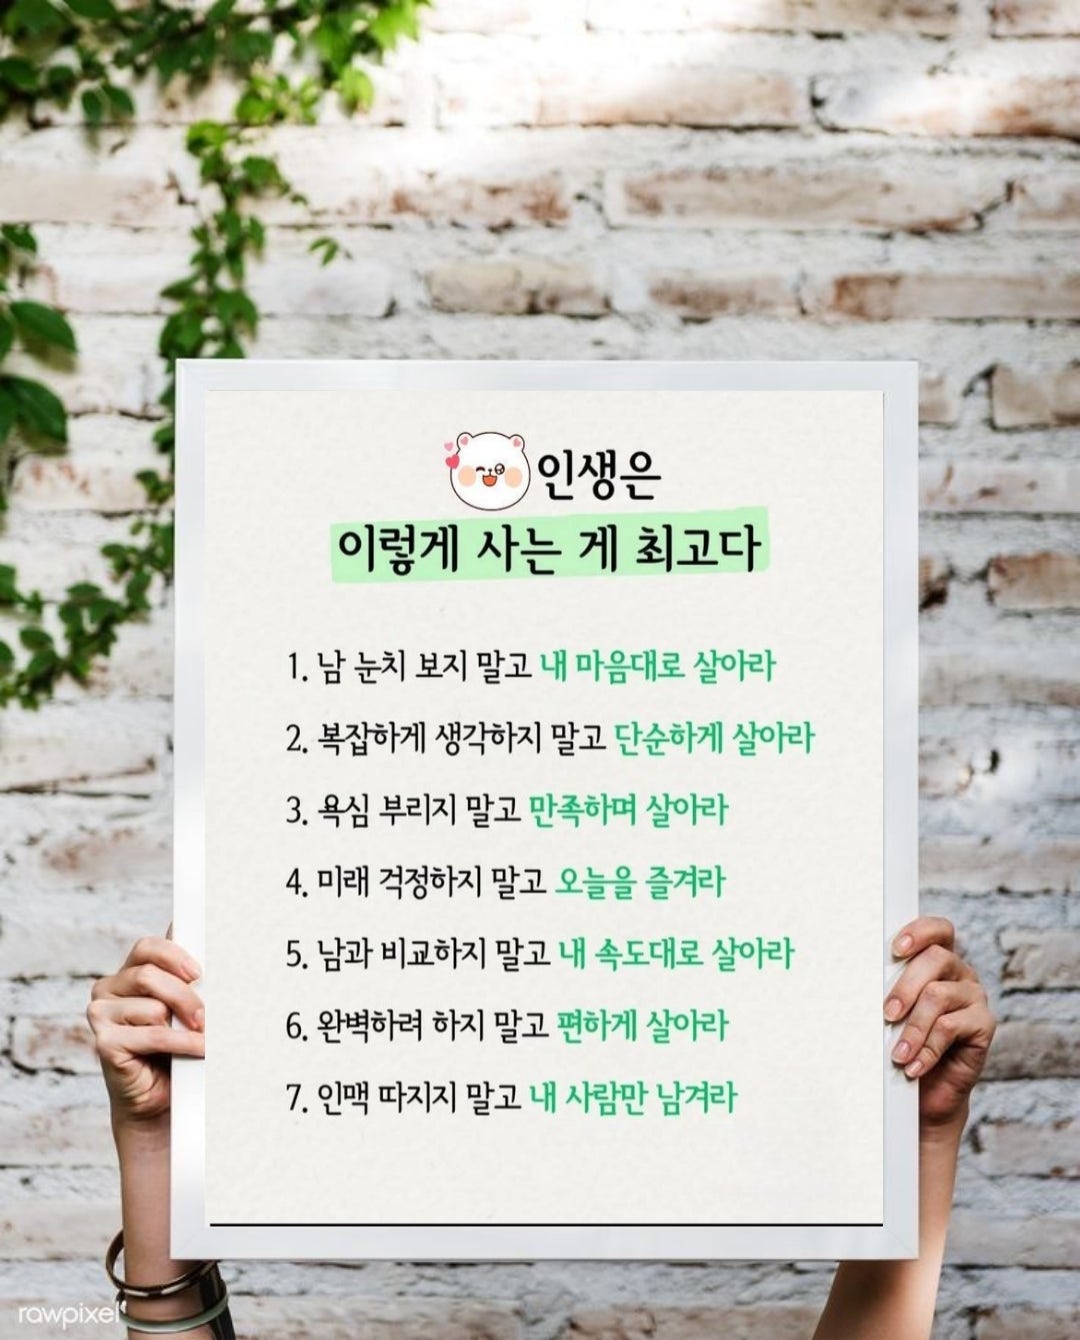 인생은
이렇게 사는 게 최고다
1. 남 눈치 보지 말고 내 마음대로 살아라
2. 복잡하게 생각하지 말고 단순하게 살아라
3. 욕심 부리지 말고 만족하며 살아라
4. 미래 걱정하지 말고 오늘을 즐겨라
5. 남과 비교하지 말고 내 속도대로 살아라
6. 완벽하려 하지 말고 편하게 살아라
7. 인맥 따지지 말고 내 사람만 남겨라
rawpixel